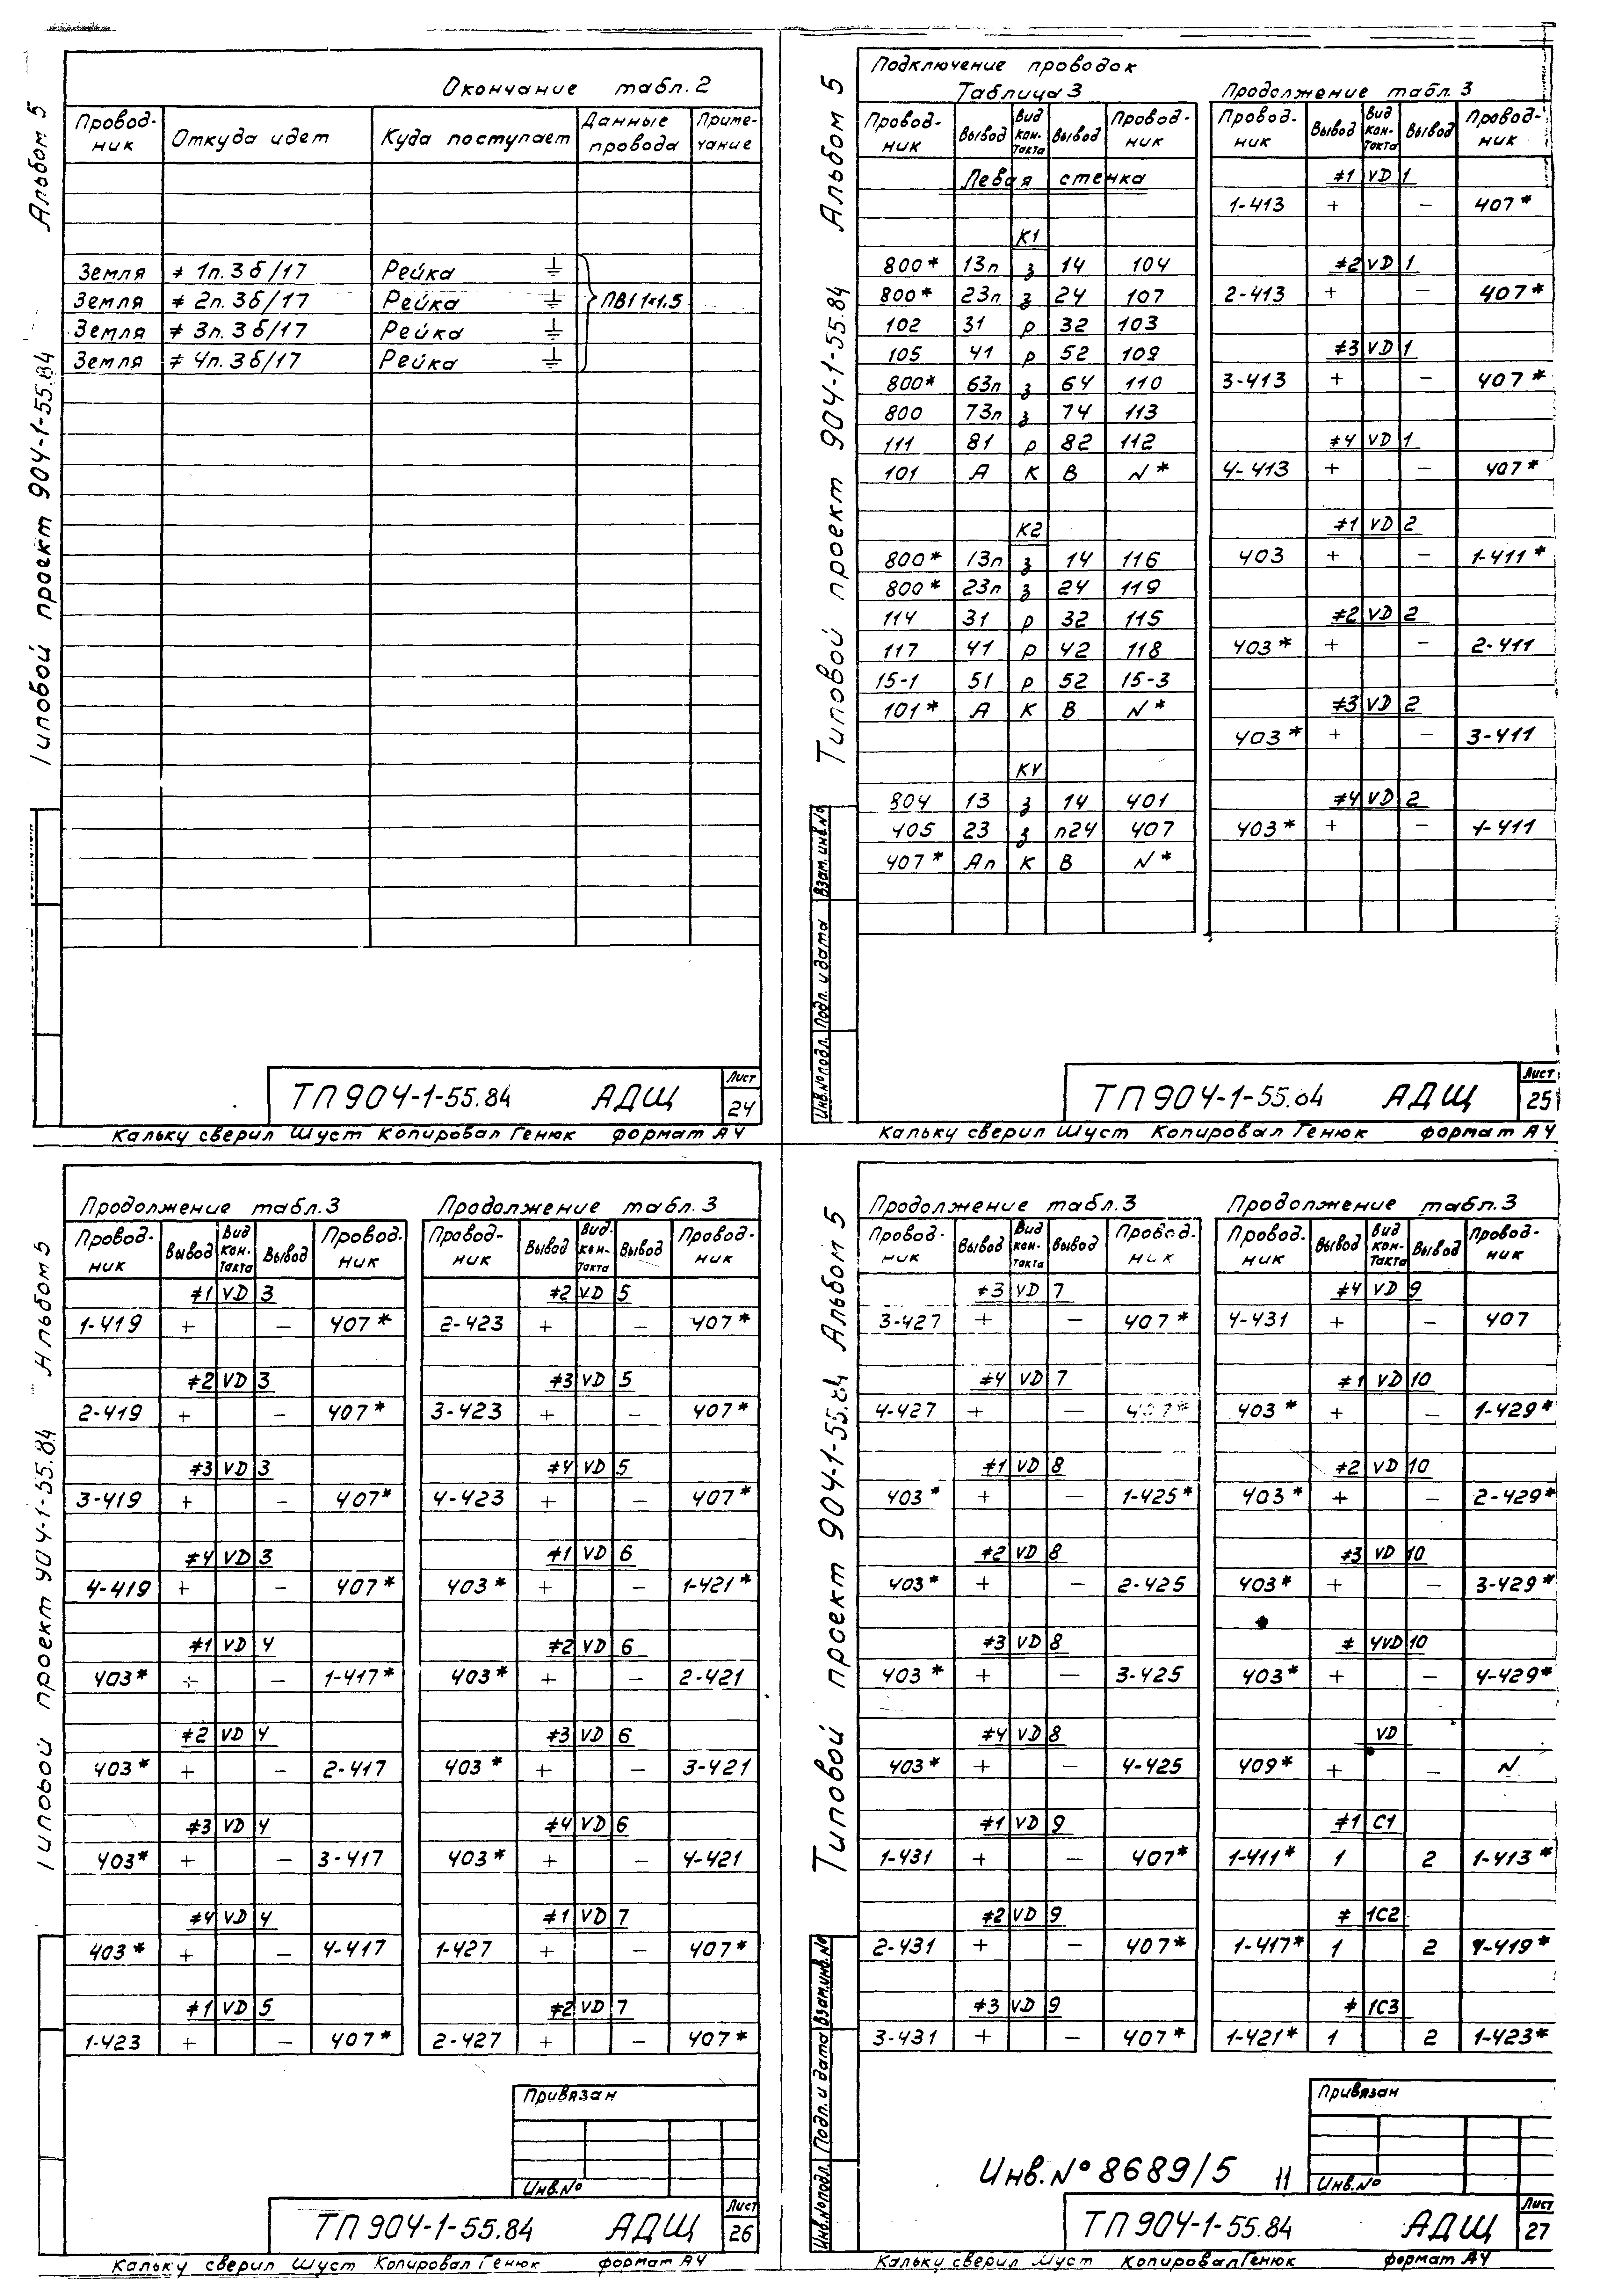 Альбом 5
Типовой проект 904-1-55.84
Окончание табл. 2
Провод-ник Откуда идет Куда поступает Данные провода Приме-чание
Земля ≠ 1п. 3б/17 Рейка ⏚ ПВ1 1×1.5
Земля ≠ 2п. 3б/17 Рейка ⏚
Земля ≠ 3п. 3б/17 Рейка ⏚
Земля ≠ 4п. 3б/17 Рейка ⏚
ТП 904-1-55.84 АДЩ Лист 24
Кальку сверил Шуст Копировал Генюк формат А4
Альбом 5
Типовой проект 904-1-55.84
Подключение проводок
Таблица 3
Провод-ник Вывод Вид кон-такта Вывод Провод-ник
Левая стенка
К1
800* 13п з 14 104
800* 23п з 24 107
102 31 р 32 103
105 41 р 52 109
800* 63п з 64 110
800 73п з 74 113
111 81 р 82 112
101 А К В N*
К2
800* 13п з 14 116
800* 23п з 24 119
114 31 р 32 115
117 41 р 42 118
15-1 51 р 52 15-3
101* А К В N*
KV
804 13 з 14 401
405 23 з п24 407
407* Ап К В N*
Продолжение табл. 3
Провод-ник Вывод Вид кон-такта Вывод Провод-ник
≠1 VD 1
1-413 + − 407*
≠2 VD 1
2-413 + − 407*
≠3 VD 1
3-413 + − 407*
≠4 VD 1
4-413 + − 407*
≠1 VD 2
403 + − 1-411*
≠2 VD 2
403* + − 2-411
≠3 VD 2
403* + − 3-411
≠4 VD 2
403* + − 4-411
Инв.№подл. Подп. и дата Взам.инв.№
ТП 904-1-55.84 АДЩ Лист 25
Кальку сверил Шуст Копировал Генюк формат А4
Альбом 5
Типовой проект 904-1-55.84
Продолжение табл. 3
Провод-ник Вывод Вид кон-такта Вывод Провод-ник
≠1 VD 3
1-419 + − 407*
≠2 VD 3
2-419 + − 407*
≠3 VD 3
3-419 + − 407*
≠4 VD 3
4-419 + − 407*
≠1 VD 4
403* + − 1-417*
≠2 VD 4
403* + − 2-417
≠3 VD 4
403* + − 3-417
≠4 VD 4
403* + − 4-417
≠1 VD 5
1-423 + − 407*
Продолжение табл. 3
Провод-ник Вывод Вид кон-такта Вывод Провод-ник
≠2 VD 5
2-423 + − 407*
≠3 VD 5
3-423 + − 407*
≠4 VD 5
4-423 + − 407*
≠1 VD 6
403* + − 1-421*
≠2 VD 6
403* + − 2-421
≠3 VD 6
403* + − 3-421
≠4 VD 6
403* + − 4-421
≠1 VD 7
1-427 + − 407*
≠2 VD 7
2-427 + − 407*
Привязан
Инв.№
ТП 904-1-55.84 АДЩ Лист 26
Кальку сверил Шуст Копировал Генюк формат А4
Типовой проект 904-1-55.84 Альбом 5
Продолжение табл. 3
Провод-ник Вывод Вид кон-такта Вывод Провод-ник
≠3 VD 7
3-427 + − 407*
≠4 VD 7
4-427 + − 407*
≠1 VD 8
403* + − 1-425*
≠2 VD 8
403* + − 2-425
≠3 VD 8
403* + − 3-425
≠4 VD 8
403* + − 4-425
≠1 VD 9
1-431 + − 407*
≠2 VD 9
2-431 + − 407*
≠3 VD 9
3-431 + − 407*
Продолжение табл. 3
Провод-ник Вывод Вид кон-такта Вывод Провод-ник
≠4 VD 9
4-431 + − 407
≠1 VD 10
403* + − 1-429*
≠2 VD 10
403* + − 2-429*
≠3 VD 10
403* + − 3-429*
≠ 4VD 10
403* + − 4-429*
VD
409* + − N
≠1 C1
1-411* 1 2 1-413*
≠ 1C2
1-417* 1 2 1-419*
≠ 1C3
1-421* 1 2 1-423*
Инв.№подл. Подп. и дата Взам.инв.№
Привязан
Инв.№
Инв.№ 8689/5 11
ТП 904-1-55.84 АДЩ Лист 27
Кальку сверил Шуст Копировал Генюк формат А4